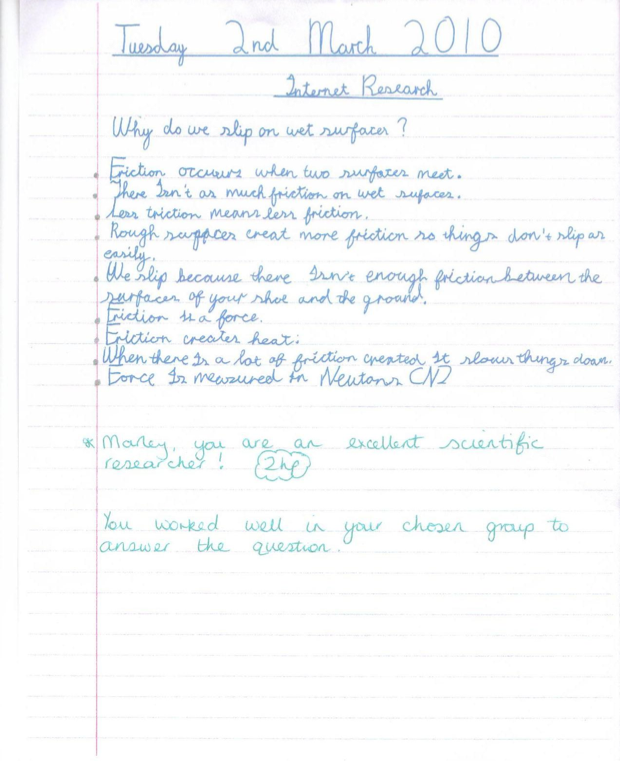 Tuesday 2nd March 2010
Internet Research
Why do we slip on wet surfaces?
Friction occurs when two surfaces meet.
There Isn't as much friction on wet sufaces.
Less triction means less friction.
Rough surfaces creat more friction so things don't slip as
easily.
We slip because there Isn't enough friction between the
surfaces of your shoe and the ground.
Friction is a force.
Friction creates heat.
When there Is a lot of friction created It slows things down.
Force Is measured in Newtons (N)
* Marley, you are an excellent scientific
researcher! 2hp
You worked well in your chosen group to
answer the question.